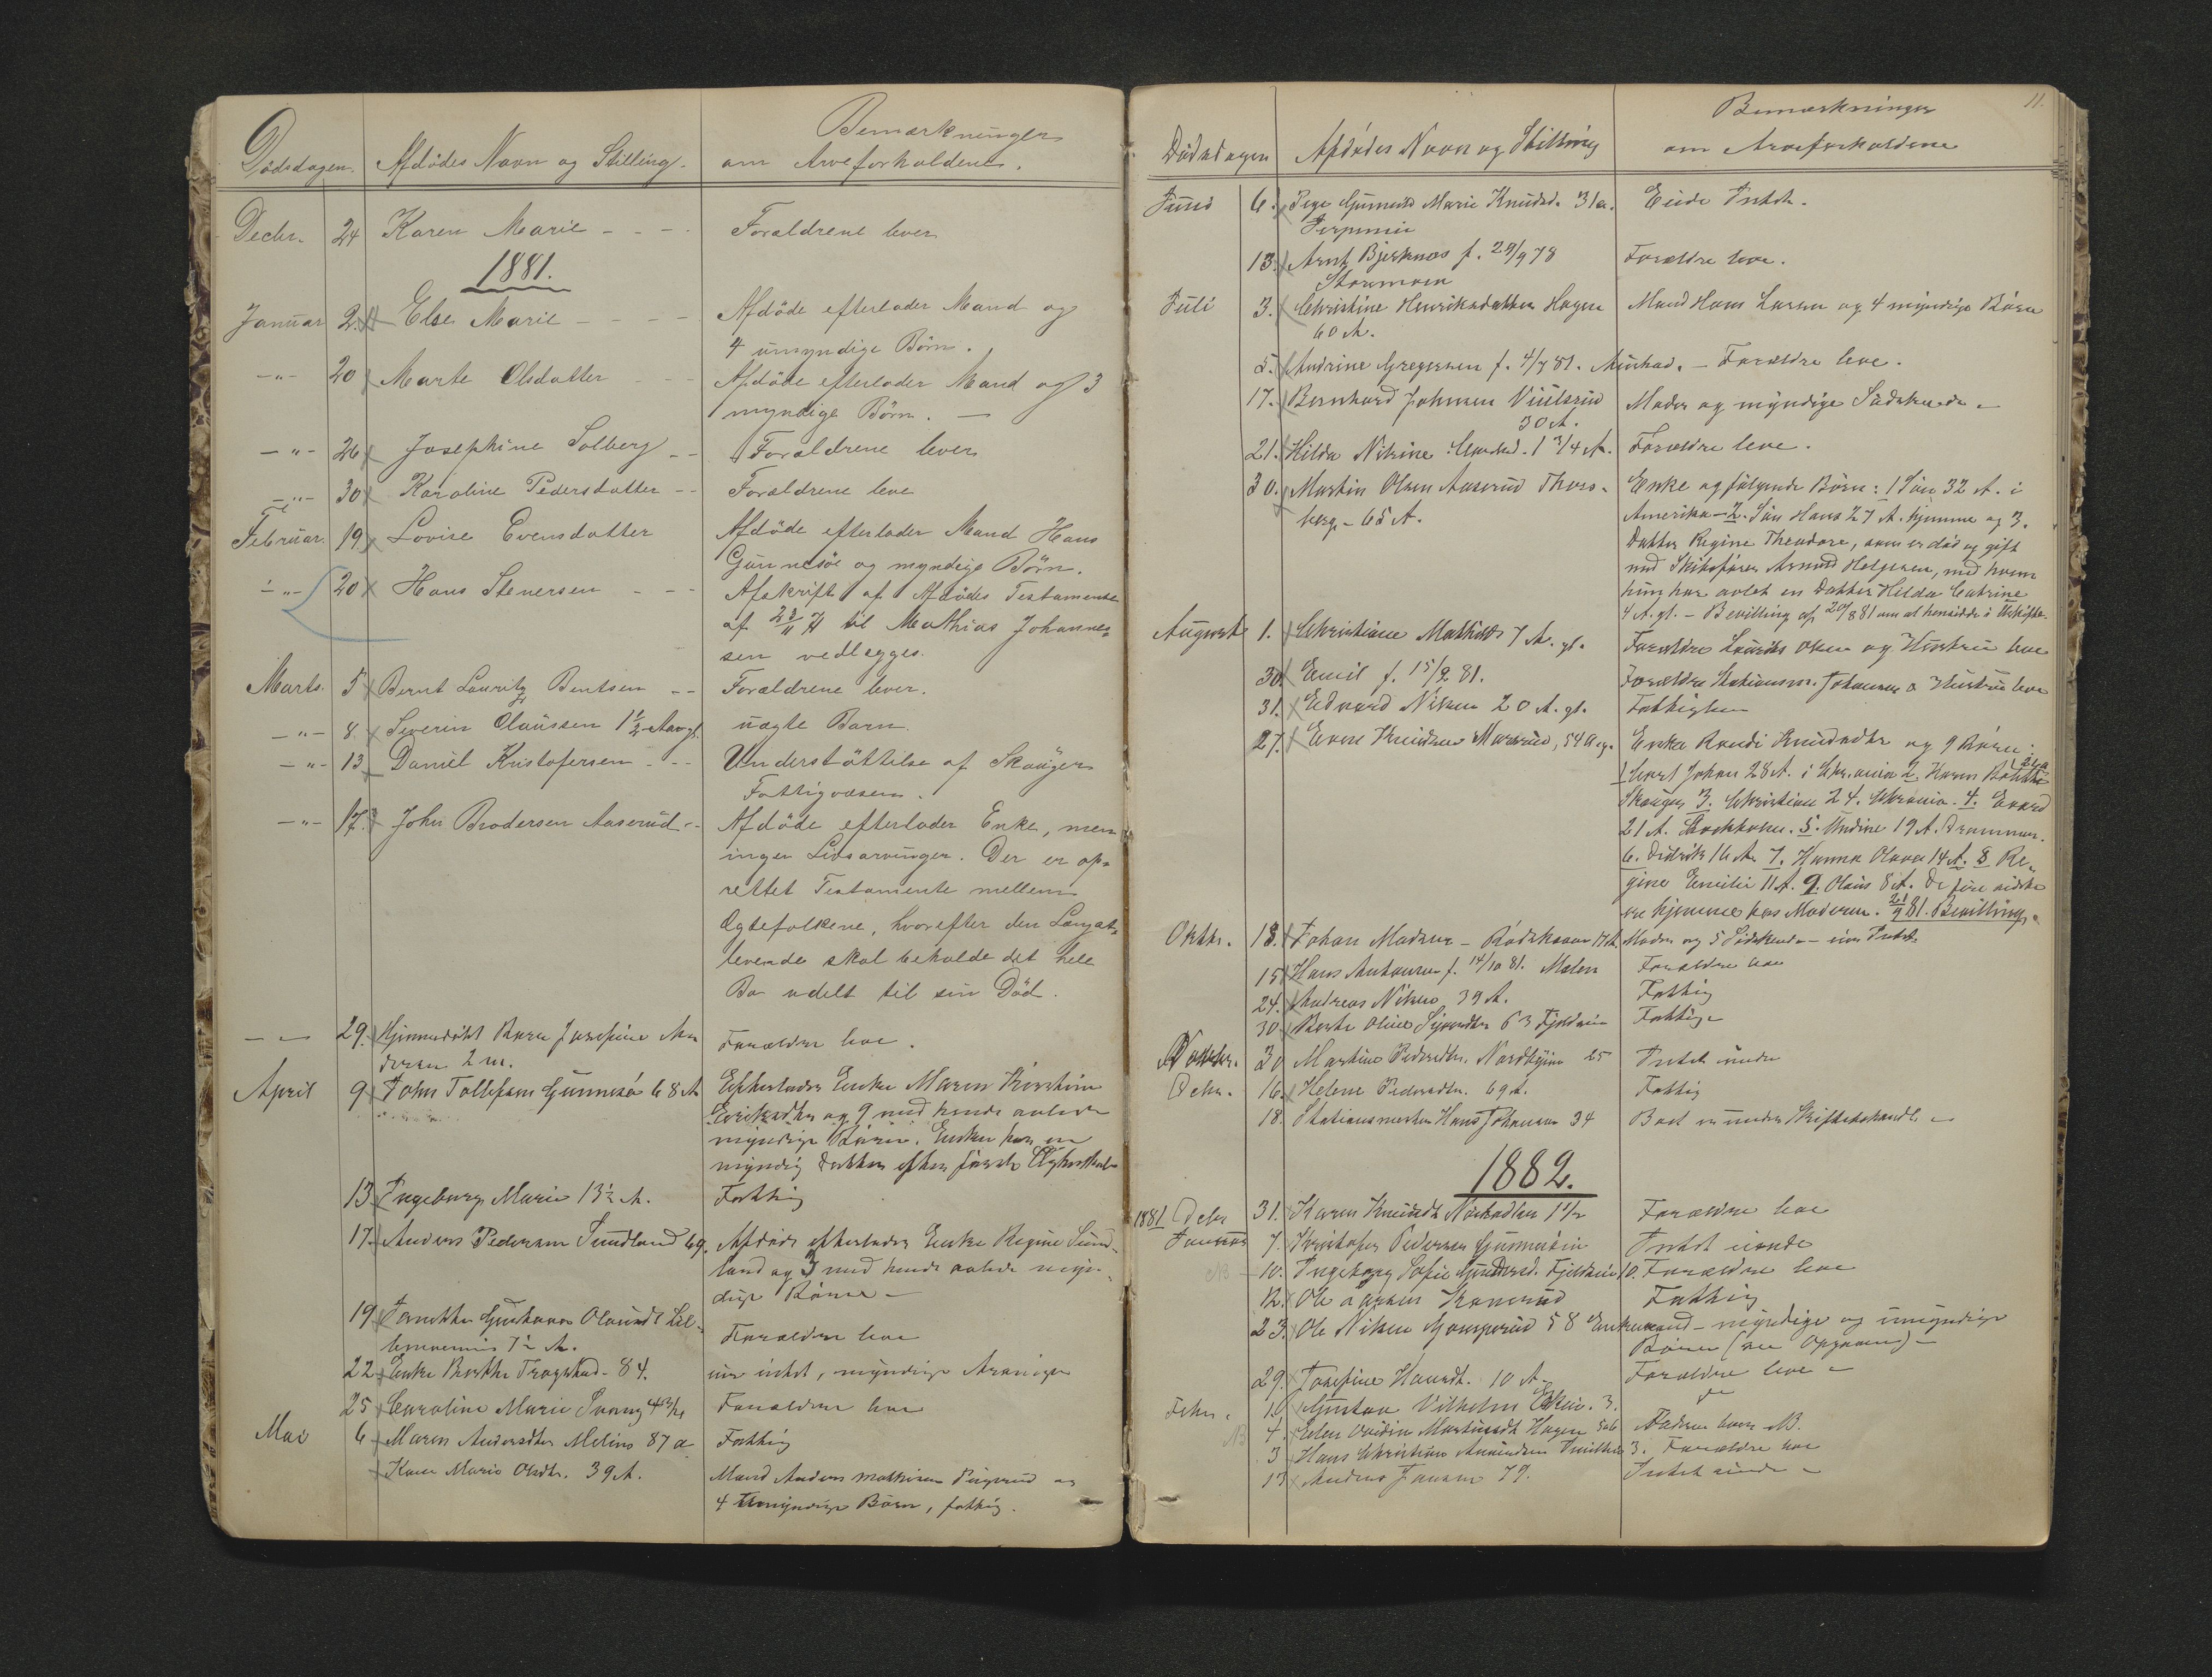 Dödsdagen. Afdödes Navn og Stilling. Bemærkninger
om Arveforholdene.
Decbr. 24 Karen Marie - - - Forældrene lever
1881.
Januar 2. Else Marie - - - - Afdöde efterlader Mand og
4 umyndige Börn.
-"- 20 Marte Olsdatter - - Afdöde efterlader Mand og 3
myndige Börn. -
-"- 26 Josephine Solberg - - Forældrene lever
-"- 30 Karoline Pedersdatter - - Forældrene leve
Februar. 19 Lovise Evensdatter Afdöde efterlader Mand Hans
Gunnesöe og myndige Börn.
-"- 20 Hans Stenersen - - - Afskrift af Afdödes Testamente
af til Mathias Johannes-
sen vedlægges.
Marts. 5 Bernt Lauritz Bentsen - - Forældrene lever.
-"- 8. Severin Olaussen 1½ Aar gl. uægte Barn
-"- 13 Daniel Kristofersen - - - Understöttelse af Skouger
Fattigvæsen.
-"- 17. John Brodersen Aaserud - - Afdöde efterlader Enke, men
ingen Livsarvinger. Der er op-
rettet Testamente mellem
Ægtefolkene, hvorefter den Længst-
levende skal beholde det hele
Bo udelt til sin Död.
- - 29. Hjemmedöbt Barn Josefine An
dersen 2 m. Forældre leve.
April 9. John Tollefsen Gunnesö 68 A Efterlader Enke Maren Kirstine
Eriksdtr og 9 med hende avlede
myndige Börn. Enken har en
myndig Datter efter første Ægteskab
13 Ingeborg Marie 13½ A. Fattig
17. Anders Pedersen Sundland 69. Afdöde efterlader Enke Regine Sund-
land og 3 med hende avlede myn-
dige Börn -
19 Gustava Olausdt Lil-
7½ A. Forældre leve
22 Enke Berthe Trogstad - 84. intet, myndige Arvinger
25 Caroline Marie 4 Forældrene leve
Mai 6 Maren Andersdtr Melins 87 a Fattig
Karen Marie Olsdtr. 39 A. Mand Anders Mathisen og
4 Umyndige Börn, fattig.
11.
Dödsdagen Afdödes Navn og Stilling Bemærkninger
om Arveforholdene
Juni 6. Gunnild Marie Knudsd. 31 a. Eiede Intet.
13. Arnt Bjerknæs f. 29/9 78 Forældre leve.
Juli 3. Christine Henriksdatter Hagen Mand Hans Larsen og 4 myndige Börn
60 A.
5. Andrine Gregersen f. 4/7 81. - Forældre leve.
17. Bernhard Johnsen Moder og myndige Södskende -
30 A.
21. Hilda Nikine 1 3/4 A. Forældre leve.
30. Martin Olsen Aaserud Thors- Enke og fölgende Börn: 1 Sön 32 A. i
berg - 65 A. Amerika - 2. Sön Hans 27 A. hjemme og 3.
Datter Regine Theodora, som er död og gift
med Skibsförer Arnund Helgesen, med hvem
hun har avlet en Datter Hilda Catrine
4 A. gl. - Bevilling af 20/8 81 om at hensidde i Uskifte.
August 1. Christiane Mathilde 7 A. gl. Forældre Lauritz Olsen og Hustru leve
30. Emil f. 15/2 81. Forældre Stationsm. Johansen o Hustru leve
31. Edvard Nilsen 20 A. gl. Fattiglem
27. Even Knudsen 54 A g. Enke Randi Knudsdtr og 9 Börn:
1 Carl Johan 28 A. i Chr.ania 2. Karen Bolette
Skouger 3. Christian 24. Chrania. 4. Evard
21 A. Stockholm. 5. Undine 19 A. Drammen.
6. Didrik 16 A. 7. Hanna Olava 14 A. 8 Re-
gine Emilie 11 A. 9. Olaus 8 A. De fire sidste
ere hjemme hos Moderen. 21/9 81. Bevilling.
Oktbr. 13. Johan Madsen - 17 A Moder og 5 Södskende - Intet
15 Hans Antonsen f. 14/10 81. Forældre leve
24. Andreas Nilsen 39 A. Fattig
30 Berte Oline 63 Fattig -
20 Martine Pedersdtr. Nordbyeie 25 Intet eiende
Decbr. 16. Helene Pedersdtr. 69 A. Fattig
18. Stationsmester Hans Johansen 34 Boet er under Skiftebehandl. -
1882.
1881 Decbr 31. Karen Knudsdt 1½ Forældre leve
Januar 7. Kristofer Pedersen Intet eiende
NB - 10. Ingeborg Sofie 10. Forældre leve
12. Ole Fattig
23. Ole Nilsen 58 Enkemand - myndige og umyndige
Börn
29. Josefine 10 A. Forældre leve -
Febr. 1. Gustav Vilhelm 3.
NB 4. Hagen NB.
3 Hans Christian 3. Forældre leve
13 Anders Jansen 79. Intet eiende -